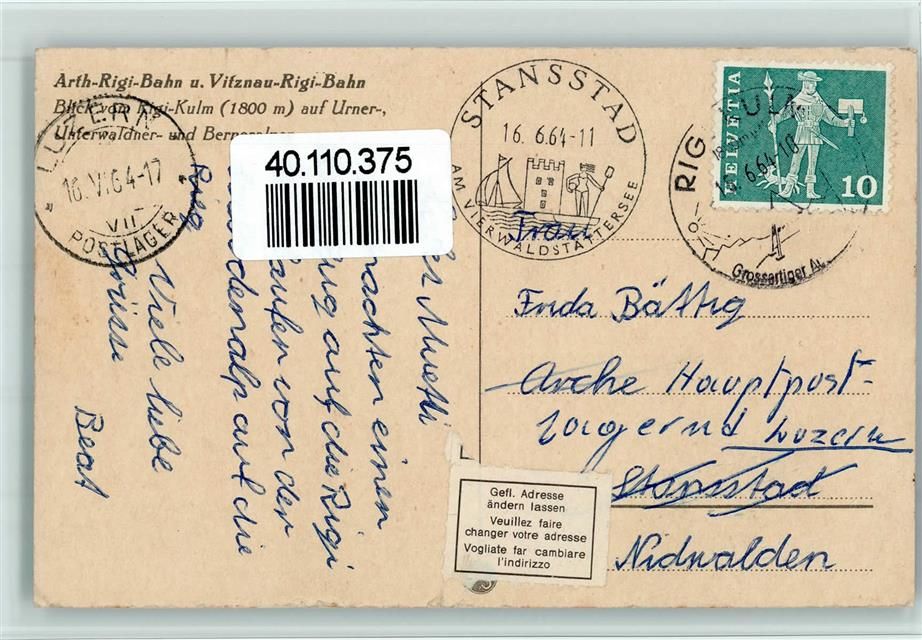 Arth-Rigi-Bahn u. Vitznau-Rigi-Bahn
Blick vom Rigi-Kulm (1800 m) auf Urner-,
Unterwaldner- und Berneralpen
LUZERN
16.VI.64-17
VII
POSTLAGER
40.110.375
STANSSTAD
16.6.64-11
AM VIERWALDSTÄTTERSEE
RIGI KULM
16.6.64-10
Grossartiger
HELVETIA
10
Muetti
machten einen
auf die Rigi
laufen von der
auf die
Rigi
Viele liebe
Grüsse
Beat
Frau
Frida Bättig
Arche Hauptpost-
lagernd Luzern
Stansstad
Nidwalden
Gefl. Adresse
ändern lassen
Veuillez faire
changer votre adresse
Vogliate far cambiare
l'indirizzo